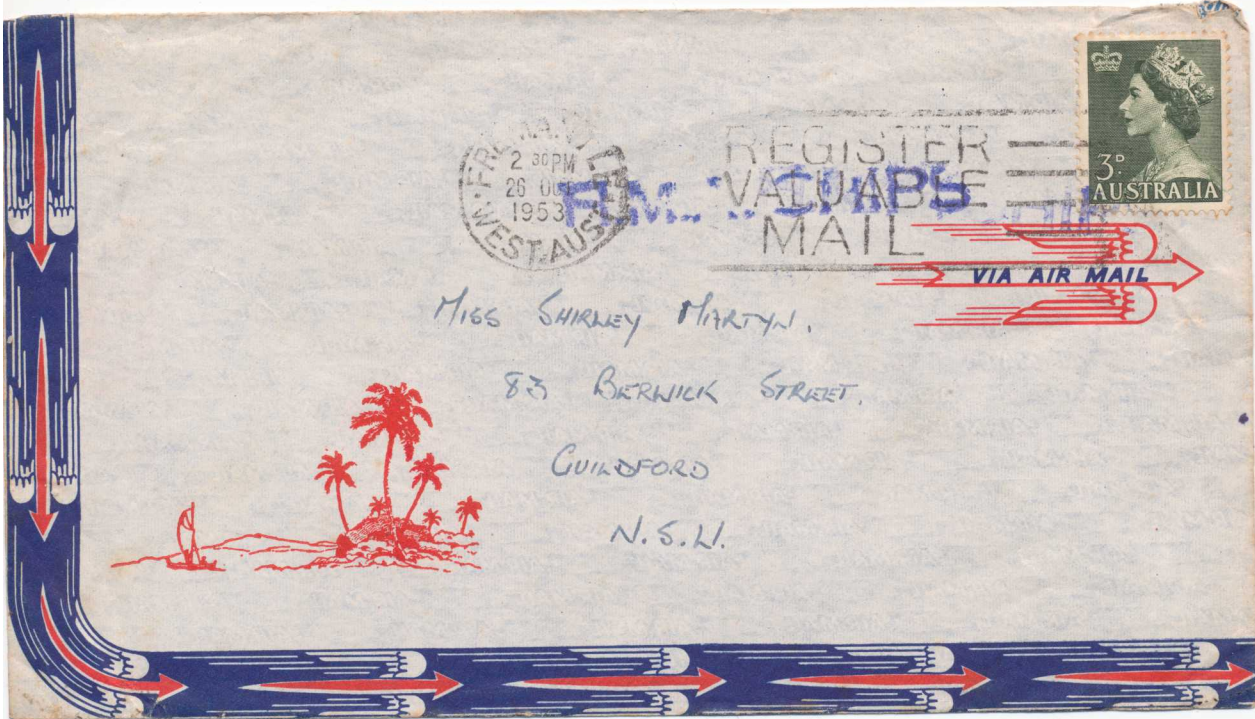 FREMANTLE
2 30PM
26 OCT
1953
WEST. AUST
REGISTER
VALUABLE
MAIL
3D
AUSTRALIA
VIA AIR MAIL
MISS SHIRLEY MARTYN.
83 BERWICK STREET.
GUILDFORD
N.S.W.